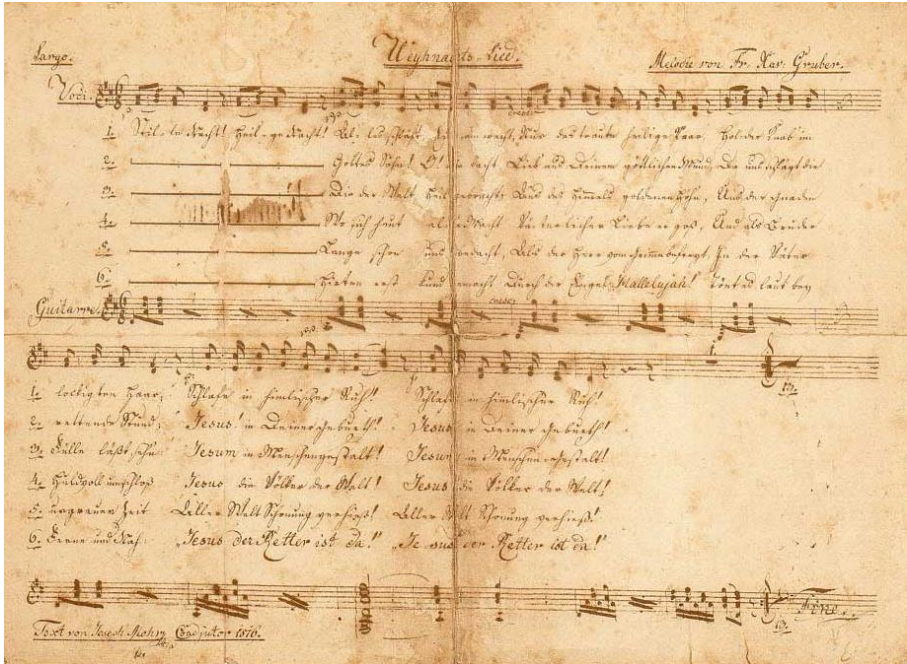 Largo. Weyhnachts-Lied. Melodie von Fr. Xav. Gruber.
Voci.
1. Stil-le Nacht! Heil-ge Nacht! Al-les schläft, Ein-sam wacht, Nur das traute heilige Paar. Holder Knab' im
2. Gottes Sohn! O! wie lacht Lieb' aus Deinem göttlichen Mund, Da uns schlägt die
3. Die der Welt Heil gebracht; Aus des Himmels goldenen Höhn, Aus der Gnaden
4. Wo sich heut alle Macht Väterlicher Liebe ergoß, Und als Bruder
5. Lange schon uns bedacht, Als der Herr vom Grimme befreyt, In der Väter
6. Hirten erst kund gemacht Durch der Engel Hallelujah! Tönt es laut bey
cresc.
Guitarre.
1. lockigten Haar; Schlafe in himlischer Ruh! Schlafe in himlischer Ruh!
2. rettende Stund, Jesus! in Deiner Geburth! Jesus in Deiner Geburth!
3. Fülle läßt sehn Jesum in Menschengestalt! Jesum in Menschen-Gestalt!
4. Huldvoll umschloß Jesus die Völker der Welt! Jesus die Völker der Welt!
5. urgrauer Zeit Aller Welt Schonung verhieß! Aller Welt Schonung verhieß!
6. Ferne und Nah: „Jesus der Retter ist da!" „Jesus der Retter ist da!"
Fine.
Text von Joseph Mohr Coadjutor 1816.